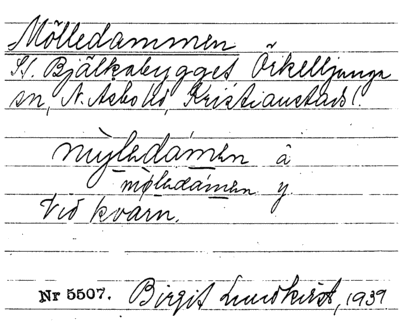 Mölledammen
St. Bjälkabygget Örkelljunga
sn, N. Åsbo hd, Kristianstads l.
mỳledámen ä
mø̀ledámen y
Vid kvarn.
Nr 5507. Birgit Lundkvist, 1939